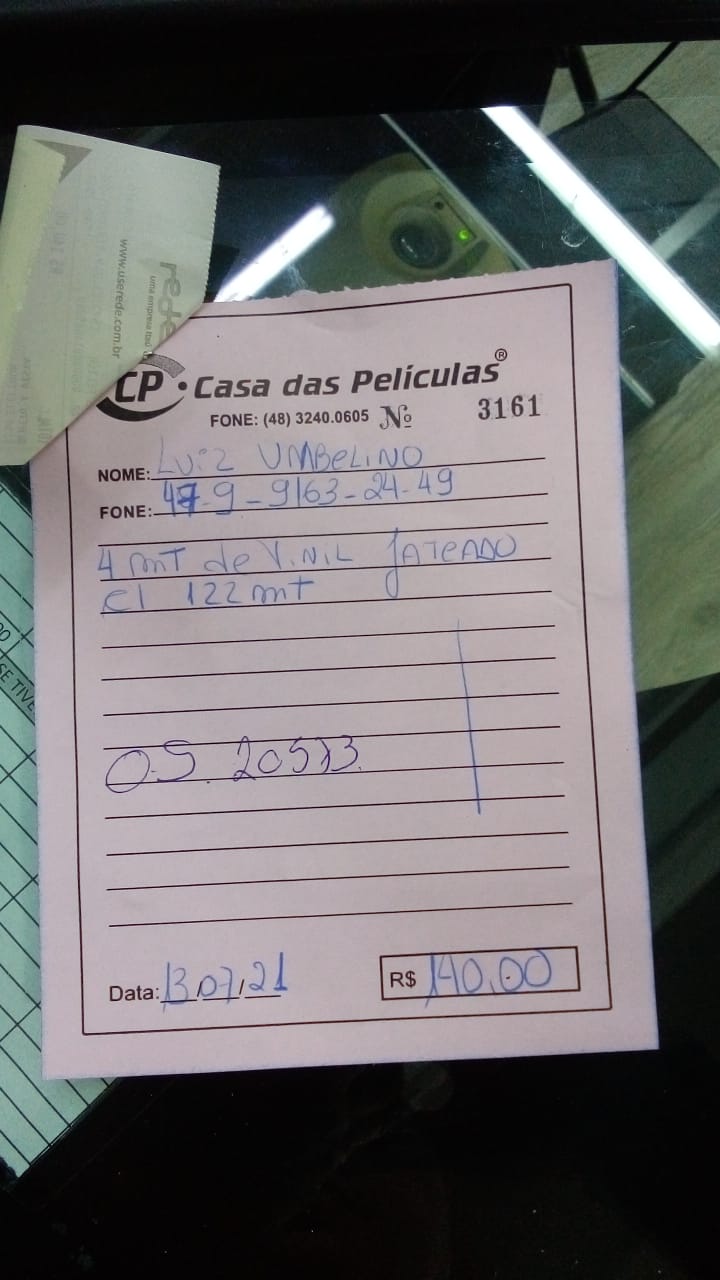 rede
uma empresa Itaú
www.userede.com.br
CP · Casa das Películas®
FONE: (48) 3240.0605 Nº 3161
NOME: Luiz UMBELINO
FONE: 47-9-9163-24-49
4 mT de ViNiL JATEADO
c/ 122 mt
O.S. 20573.
Data: 13/07/21 R$ 140,00
SE TIVE